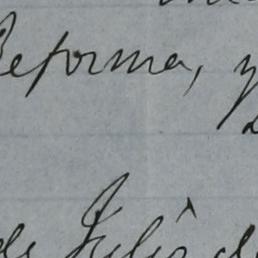 Reforma, y
de Julio de